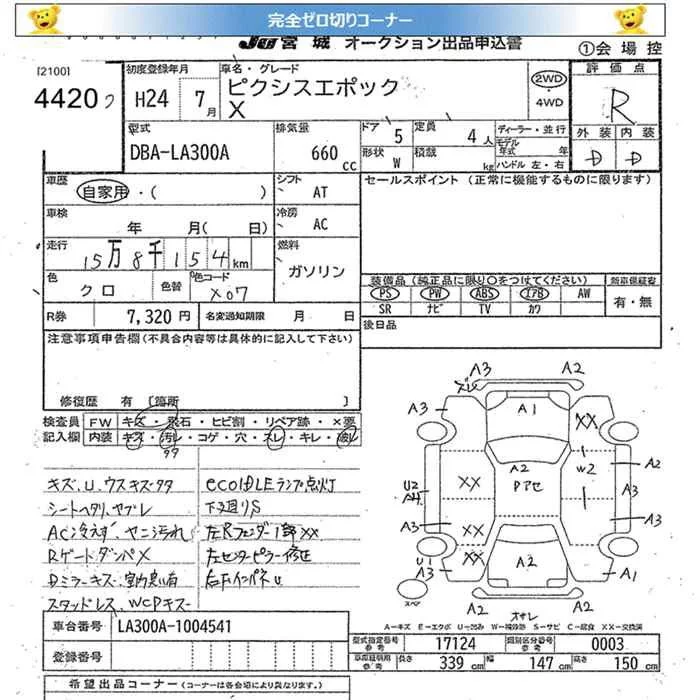 完全ゼロ切りコーナー
JU宮城 オークション出品申込書
①会場控
[2100]
4420
初度登録年月
H24 7月
車名・グレード
ピクシスエポック
X
2WD
・4WD
評価点
R
外装 内装
D D
型式
DBA-LA300A
排気量
660 cc
ドア 5
定員 4人
形状 W
積載 kg
ディーラー・並行
モデル年式 年
ハンドル 左・右
車歴
自家用・( )
シフト
AT
セールスポイント (正常に機能するものに限ります)
車検
年 月( 日)
冷房
AC
走行
15万8千154km
燃料
ガソリン
色
クロ
色替
色コード
X07
装備品 (純正品に限り○をつけてください)
新車保証書
PS PW ABS エアB AW
SR ナビ TV カワ
有・無
R券
7,320円
名変通知期限 月 日
後日品
注意事項申告欄(不具合内容等は具体的に記入して下さい)
修復歴 有 [箇所 ]
検査員
記入欄
FW キズ・飛石・ヒビ割・リペア跡・×要
内装 キズ・汚レ・コゲ・穴・スレ・キレ・破レ
キズ.U.ウスキズ・タタ
シートヘタリ.ヤブレ
AC冷えず.ヤニ汚れ
RゲートダンパX
Dミラーキズ.室内臭い有
スタッドレス.WCPキズ
eco IDLEランプ点灯
下廻りS
左Rフェンダー1部XX
左センターピラー修正
右Fインパネu
A3 A2
ズレ
A3 A1 XX A3
A2 W2 A2
Pアセ
U2
XX A3
A3 XX A3
U1 XX
A3 A2 A1
A2
スペア
A2 オサレ
A－キズ E－エクボ U－凹み W－補修跡 S－サビ C－腐食 XX－交換済
車台番号
LA300A-1004541
登録番号
型式指定番号
参考
17124
類別区分番号
参考
0003
車庫証明用
参考
長さ 339 cm
幅 147 cm
高さ 150 cm
希望出品コーナー (コーナーは各会場により異なります。)